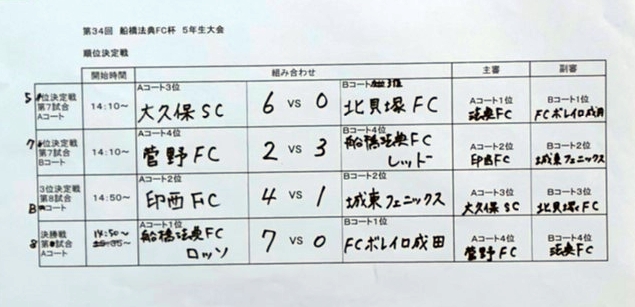 第34回 船橋法典FC杯 5年生大会
順位決定戦
開始時間 組み合わせ 主審 副審
5位決定戦 第7試合 Aコート
14:10～
Aコート3位 大久保SC
6 VS 0
Bコート3位 北貝塚FC
Aコート1位 法典FC
Bコート1位 FCボレイロ成田
7位決定戦 第7試合 Bコート
14:10～
Aコート4位 菅野FC
2 VS 3
Bコート4位 船橋法典FC レッド
Aコート2位 印西FC
Bコート2位 城東フェニックス
3位決定戦 第8試合 Bコート
14:50～
Aコート2位 印西FC
4 VS 1
Bコート2位 城東フェニックス
Aコート3位 大久保SC
Bコート3位 北貝塚FC
決勝戦 第8試合 Aコート
14:50～
Aコート1位 船橋法典FC ロッソ
7 VS 0
Bコート1位 FCボレイロ成田
Aコート4位 菅野FC
Bコート4位 法典FC